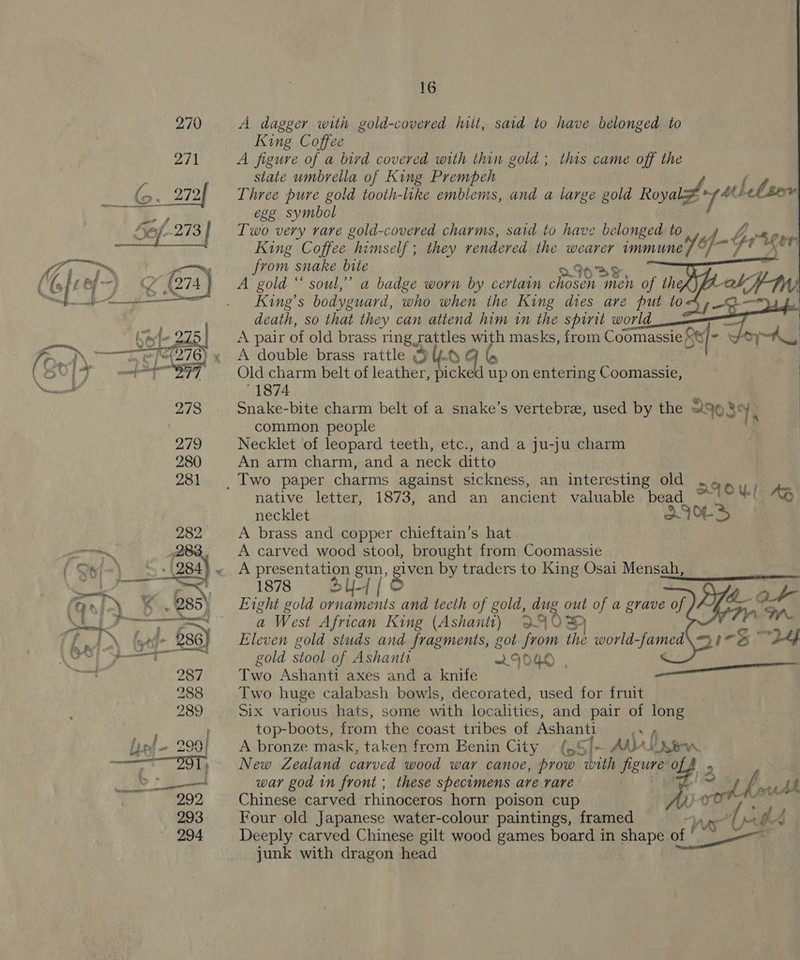 16
270 A dagger with gold-covered hilt, said to have belonged to
King Coffee
271 A figure of a bird covered with thin gold ; this came off the
state umbrella of King Prempeh
272 Three pure gold tooth-like emblems, and a large gold Royal
egg symbol
273 Two very rare gold-covered charms, said to have belonged to
King Coffee himself ; they rendered the wearer immune
from snake bite
274 A gold “ soul,” a badge worn by certain chosen men of the
King's bodyguard, who when the King dies are put to
death, so that they can attend him in the spirit world
275 A pair of old brass ring rattles with masks, from Coomassie
276 A double brass rattle
277 Old charm belt of leather, picked up on entering Coomassie,
1874
278 Snake-bite charm belt of a snake's vertebræ, used by the
common people
279 Necklet of leopard teeth, etc., and a ju-ju charm
280 An arm charm, and a neck ditto
281 Two paper charms against sickness, an interesting old
native letter, 1873, and an ancient valuable bead
necklet
282 A brass and copper chieftain's hat
283 A carved wood stool, brought from Coomassie
284 A presentation gun, given by traders to King Osai Mensah,
1878
285 Eight gold ornaments and teeth of gold, dug out of a grave of
a West African King (Ashanti)
286 Eleven gold studs and fragments, got from the world-famed
gold stool of Ashanti
287 Two Ashanti axes and a knife
288 Two huge calabash bowls, decorated, used for fruit
289 Six various hats, some with localities, and pair of long
top-boots, from the coast tribes of Ashanti
290 A bronze mask, taken from Benin City
291 New Zealand carved wood war canoe, prow with figure of
war god in front ; these specimens are rare
292 Chinese carved rhinoceros horn poison cup
293 Four old Japanese water-colour paintings, framed
294 Deeply carved Chinese gilt wood games board in shape of
junk with dragon head